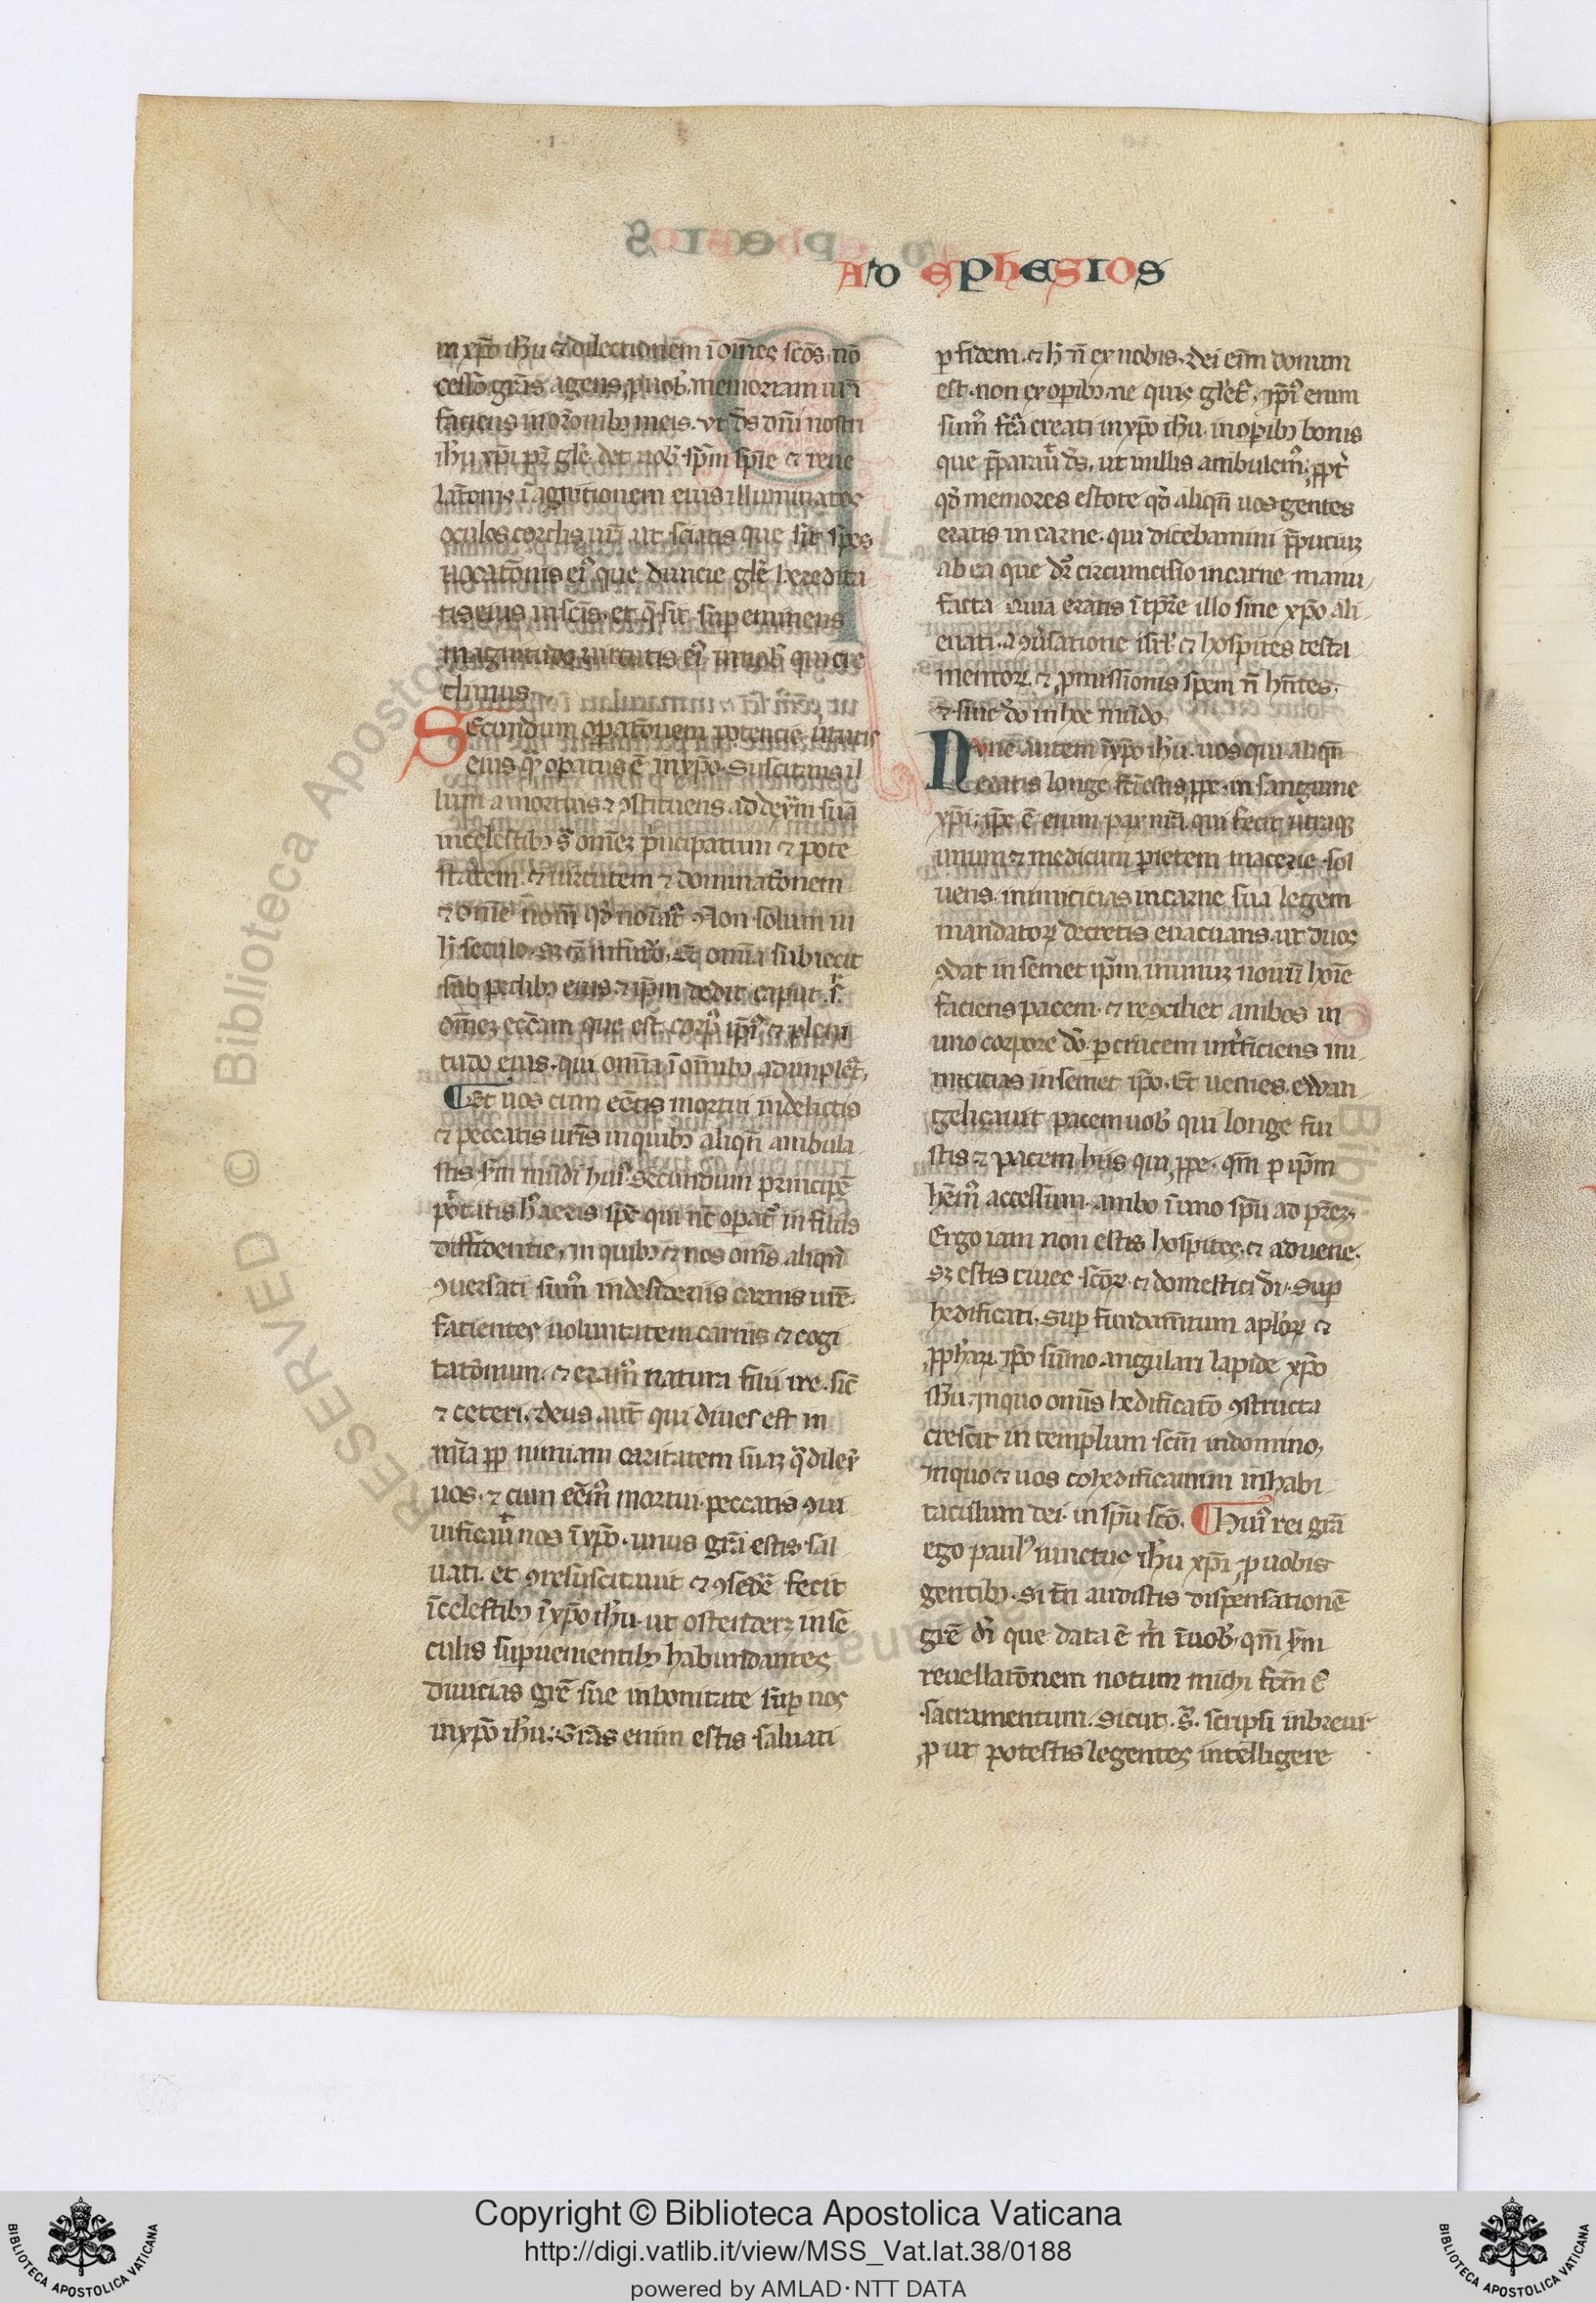 AD EPHESIOS
in xp̄o ih̄u ⁊ dilectionem ī om̄es sc̄os, nō
cesso gr̄as agens, ꝓ uob̕, memoriam ur̄i
faciens in or̄onibꝰ meis. vt d̄s dn̄i nostri
ih̄u xp̄i pr̄ gl̄e det uob̕ sp̄m sp̄ie ⁊ reue
lat̄onis ī agnitionem eius illuminatos
oculos cordis ur̄i ut sciatis que sit spes
uocat̄onis ei᷒ que diuicie gl̄e heredita
tis eius in sc̄is. et q̄ sit supeminens
magnitudo uirtutis ei᷒ in uob̕ qui cre
dimus.
Secundum opat̄onem potencie ūtutis
eius qͣ opatus ē in xp̄o. Suscitans il
lum a mortuis ⁊ ꝯstituens ad dext̄m suā
in celestibꝰ s̄ om̄eꝫ p̄ncipatum ⁊ pote
statem. ⁊ uirtutem ⁊ dominat̄onem
⁊ om̄e nom̄ qd̕ noīat̄᷒ Non solum in
h̄ seculo. sꝫ ⁊ in futuro. Et om̄ia subiecit
sub pedibꝰ eius. ⁊ ip̄m dedit caput. s̄.
om̄eꝫ ecc̄am que est corp᷒ ip̄i᷒ ⁊ pleni
tudo eius. qui om̄ia ī om̄ibꝰ adimplet̄᷒
Et uos cum eētis mortui in delictis
⁊ peccatis ur̄is in quibꝰ aliqn̄ ambula
stis. sm̄ mūdi hui᷒. Secundum principē
pōtatis h᷒ aeris sp̄c qui nc̄ opat̄᷒ in filiis
diffidentie, in quibꝰ ⁊ nos om̄s aliqn̄
ꝯuersati sum᷒ in desideriis carnis nr̄e.
facientes uoluntatem carnis ⁊ cogi
tat̄onum. ⁊ eram᷒ natura filii ire. sic̄
⁊ ceteri. deus aut̄ qui diues est in
mīa ꝓp̄ nimiam caritatem suaꝫ qͣ dilex̄
nos. ⁊ cum eēm᷒ mortui. peccatis ꝯui
uificauit nos ī xp̄o. cuius gr̄a estis sal
uati. et ꝯresuscitauit ⁊ ꝯsedē fecit
ī celestibꝰ ī xp̄o ih̄u. ut ostenderꝫ in sē
culis supuenientibꝰ habundantes
diuicias gr̄e sue in bonitate sup nos
in xp̄o ih̄u. Gr̄a enim estis saluati
ꝑ fidem. ⁊ h̄ n̄ ex nobis. dei eīm donum
est. non ex opibꝰ ne quis glet̄᷒. ip̄i᷒ enim
sum᷒ fc̄a creati in xp̄o ih̄u. in opibꝰ bonis
que p̄parauit d̄s. ut in illis ambulem᷒. ꝓpt̄
qd̕ memores estote qd̕ aliqn̄ uos gentes
eratis in carne. qui dicebamini p̄puciuꝫ
ab ea que dr̄ circumcisio in carne manu
facta Quia eratis ī tp̄re illo sine xp̄o ali
enati. a ꝯūsatione isrl̄ ⁊ hospites testa
mentoꝝ ⁊ ꝓmissionis spem n̄ hn̄tes.
⁊ sine dō in hoc mūdo.
Nunc autem ī xp̄o ih̄u. uos qui aliqn̄
eratis longe fc̄i estis ꝓpe. in sanguine
xp̄i. ip̄e ē enim pax nr̄a qui fecit utraqꝫ
unum ⁊ medium pietem macerie. sol
uens. inimicicias in carne sua legem
mandatoꝝ decretis euacuans. ut duos
ꝯdat in semet ip̄m. in unuꝫ nouū hoīē
faciens pacem. ⁊ reꝯciliet ambos in
uno corpore dō. ꝑ crucem int̄ficiens ini
micicias in semet ip̄o. Et ueniēs. ewan
gelizauit pacem uob̕ qui longe fui
stis ⁊ pacem hiis qui ꝓpe. qm̄ ꝑ ip̄m
hēm᷒ accessum. ambo ī uno sp̄u ad pr̄eꝫ.
Ergo iam non estis hospites. ⁊ aduene.
sꝫ estis ciues sc̄oꝝ ⁊ domestici dī. sup
hedificati. sup fundam̄tum aplōꝝ ⁊
ꝓph̄aꝝ. ip̄o sūmo angulari lapide xp̄o
ih̄u. in quo om̄is hedificat̄o ꝯstructa
crescit in templum sc̄m in domino.
in quo ⁊ uos cohedificamini in habi
taculum dei. in sp̄u sc̄o. Hui᷒ rei gr̄a
ego paul᷒ uinctus ih̄u xp̄i ꝓ uobis
gentibꝰ. Si tn̄ audistis dispensationē
gr̄e dī que data ē m̄ ī uob̕, qm̄ sm̄
reuellat̄onem notum michi fc̄m ē
sacramentum. Sicut. s̄. scripsi in breui
ꝓ ut potestis legentes intelligere
Copyright © Biblioteca Apostolica Vaticana
http://digi.vatlib.it/view/MSS_Vat.lat.38/0188
powered by AMLAD·NTT DATA